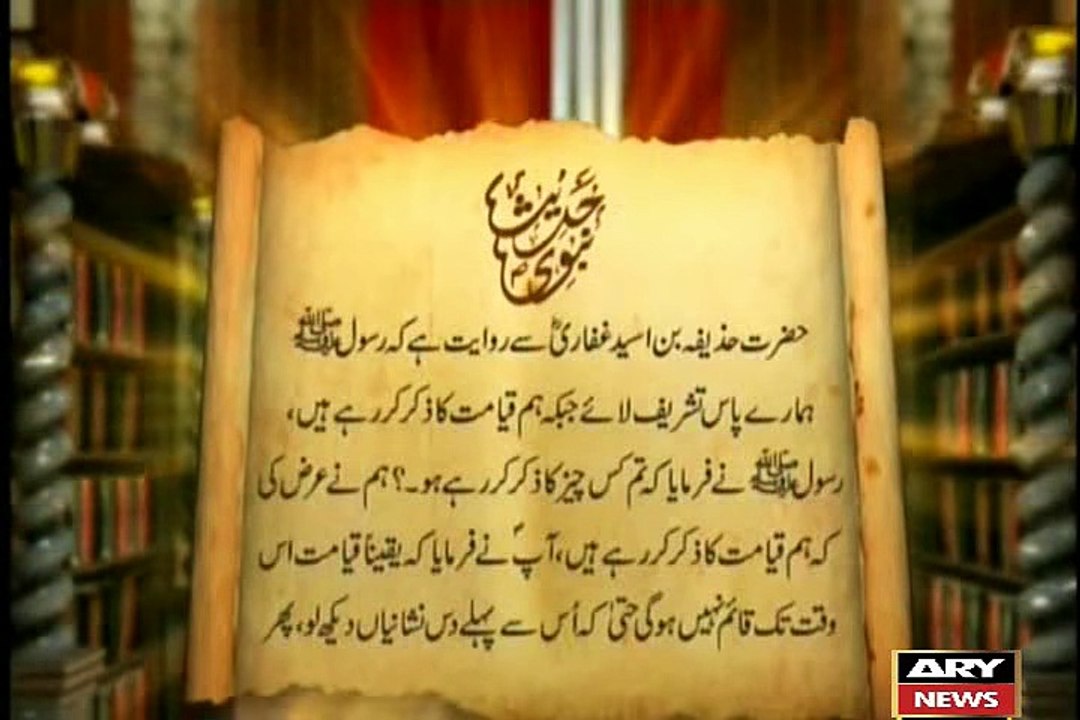 حدیث نبوی ﷺ
حضرت حذیفہ بن اسید غفاریؓ سے روایت ہے کہ رسول ﷺ
ہمارے پاس تشریف لائے جبکہ ہم قیامت کا ذکر کر رہے ہیں،
رسول ﷺ نے فرمایا کہ تم کس چیز کا ذکر کر رہے ہو۔؟ ہم نے عرض کی
کہ ہم قیامت کا ذکر کر رہے ہیں، آپؐ نے فرمایا کہ یقیناً قیامت اس
وقت تک قائم نہیں ہوگی حتیٰ کہ اُس سے پہلے دس نشانیاں دیکھ لو، پھر
ARY
NEWS